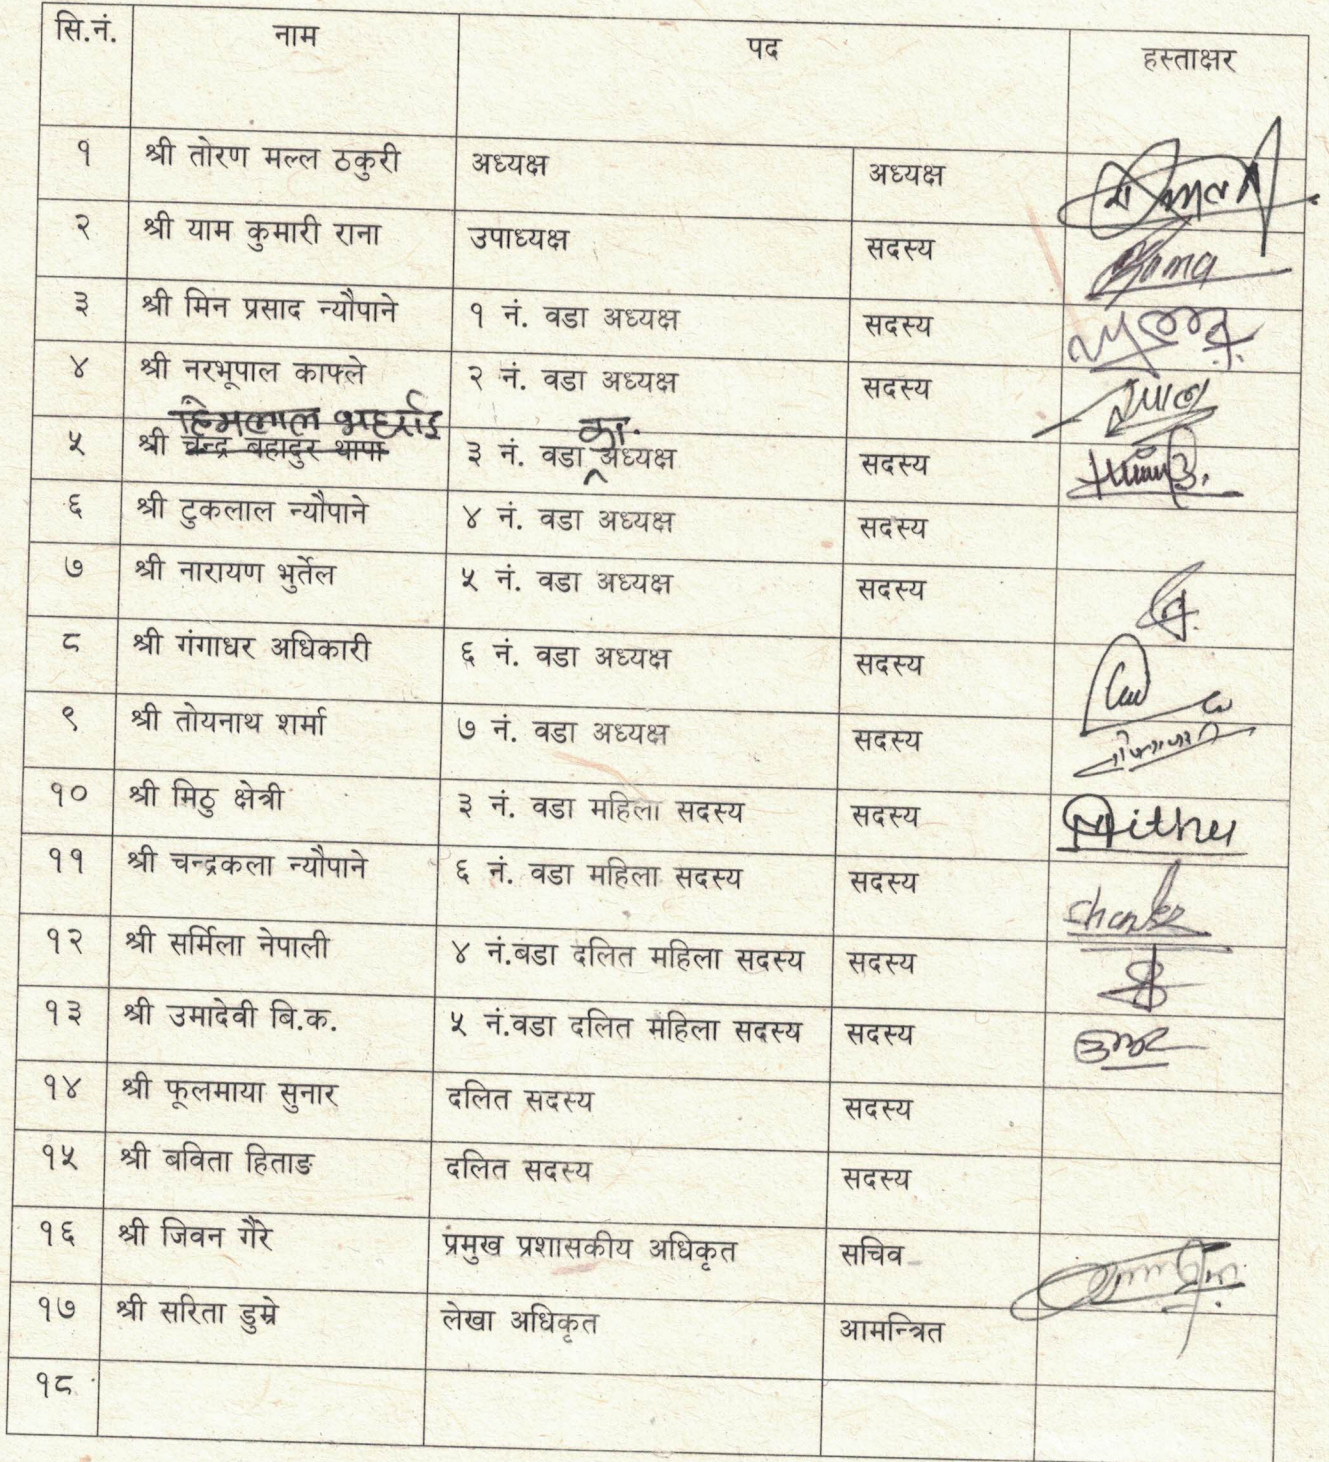 सि.नं. नाम पद हस्ताक्षर
१ श्री तोरण मल्ल ठकुरी अध्यक्ष अध्यक्ष
२ श्री याम कुमारी राना उपाध्यक्ष सदस्य
३ श्री मिन प्रसाद न्यौपाने १ नं. वडा अध्यक्ष सदस्य
४ श्री नरभूपाल काफ्ले २ नं. वडा अध्यक्ष सदस्य
हिमलाल भट्टराई का.
५ श्री चन्द्र बहादुर थापा ३ नं. वडा अध्यक्ष सदस्य
६ श्री टुकलाल न्यौपाने ४ नं. वडा अध्यक्ष सदस्य
७ श्री नारायण भुर्तेल ५ नं. वडा अध्यक्ष सदस्य
८ श्री गंगाधर अधिकारी ६ नं. वडा अध्यक्ष सदस्य
९ श्री तोयनाथ शर्मा ७ नं. वडा अध्यक्ष सदस्य
१० श्री मिठु क्षेत्री ३ नं. वडा महिला सदस्य सदस्य Mithu
११ श्री चन्द्रकला न्यौपाने ६ नं. वडा महिला सदस्य सदस्य
१२ श्री सर्मिला नेपाली ४ नं.वडा दलित महिला सदस्य सदस्य
१३ श्री उमादेवी बि.क. ५ नं.वडा दलित महिला सदस्य सदस्य
१४ श्री फूलमाया सुनार दलित सदस्य सदस्य
१५ श्री बविता हिताङ दलित सदस्य सदस्य
१६ श्री जिवन गैरे प्रमुख प्रशासकीय अधिकृत सचिव
१७ श्री सरिता डुम्रे लेखा अधिकृत आमन्त्रित
१८